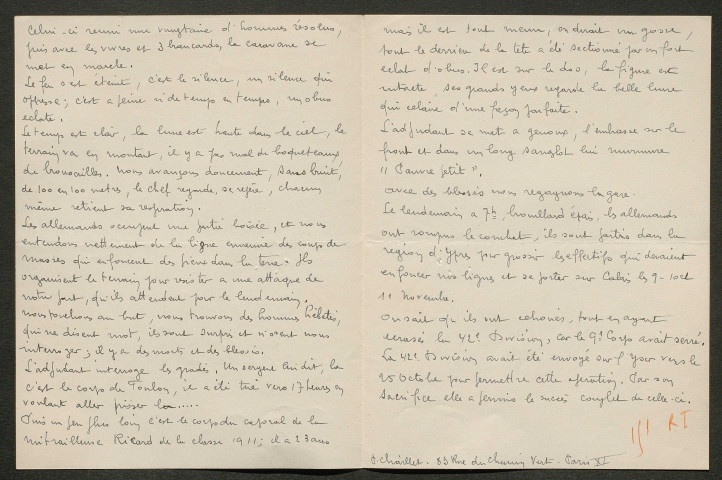 Celui-ci reunit une vingtaine d'hommes résolus,
puis avec les vivres et 3 brancards, la caravane se
met en marche.
Le feu s'est éteint, c'est le silence, un silence qui
oppresse; c'est a peine si de temps en temps, un obus
eclate.
Le temps est clair, la lune est haute dans le ciel, le
terrain va en montant, il y a pas mal de boqueteaux
de brousailles. nous avançons doucement, sans bruit,
de 100 en 100 metres, le chef regarde, se repère, chacun
même retient sa respiration.
Les allemands occupent une partie boisée, et nous
entendons nettement de la ligne ennemie des coups de
masses qui enfoncent des pieux dans la terre. Ils
organisent le terrain pour resister a une attaque de
notre part, qu'ils attendent pour le lendemain.
nous touchons au but, nous trouvons des hommes hébétés,
qui ne disent mot, ils sont surpris et n'osent nous
interroger; il y a des morts et des blessés.
L'adjudant interroge les gradés. Un sergent lui dit, la
c'est le corps de Toulon, il a été tué vers 17 heures en
voulant aller poser la.....
Puis un peu plus loin c'est le corps du caporal de la
mitrailleuse Ricard de la classe 1911; il a 23 ans
mais il est tout menu, on dirait un gosse,
tout le derriere de la tete a été sectionné par un fort
eclat d'obus. Il est sur le dos, la figure est
intacte, ses grands yeux regarde la belle lune
qui eclaire d'une façon parfaite.
L'adjudant se met a genoux, l'embrasse sur le
front et dans un long sanglot lui murmure
"Pauvre petit".
avec des blessés nous regagnons la gare.
Le lendemain a 7h, brouillard épais, les allemands
ont rompu le combat, ils sont partis dans la
region d'Ypres pour grossir les effectifs qui devaient
enfoncer nos lignes et se porter sur Calais les 9-10 et
11 Novembre.
On sait qu'ils ont échoués, tout en ayant
ecrasé la 42e Division, car le 9e Corps avait serré.
La 42e Division avait été envoyé sur l'Yser vers le
25 Octobre pour permettre cette operation. Par son
sacrifice elle a permis le succès complet de celle-ci.
151 RI
P. Chaillet - 83 Rue du Chemin Vert - Paris XI